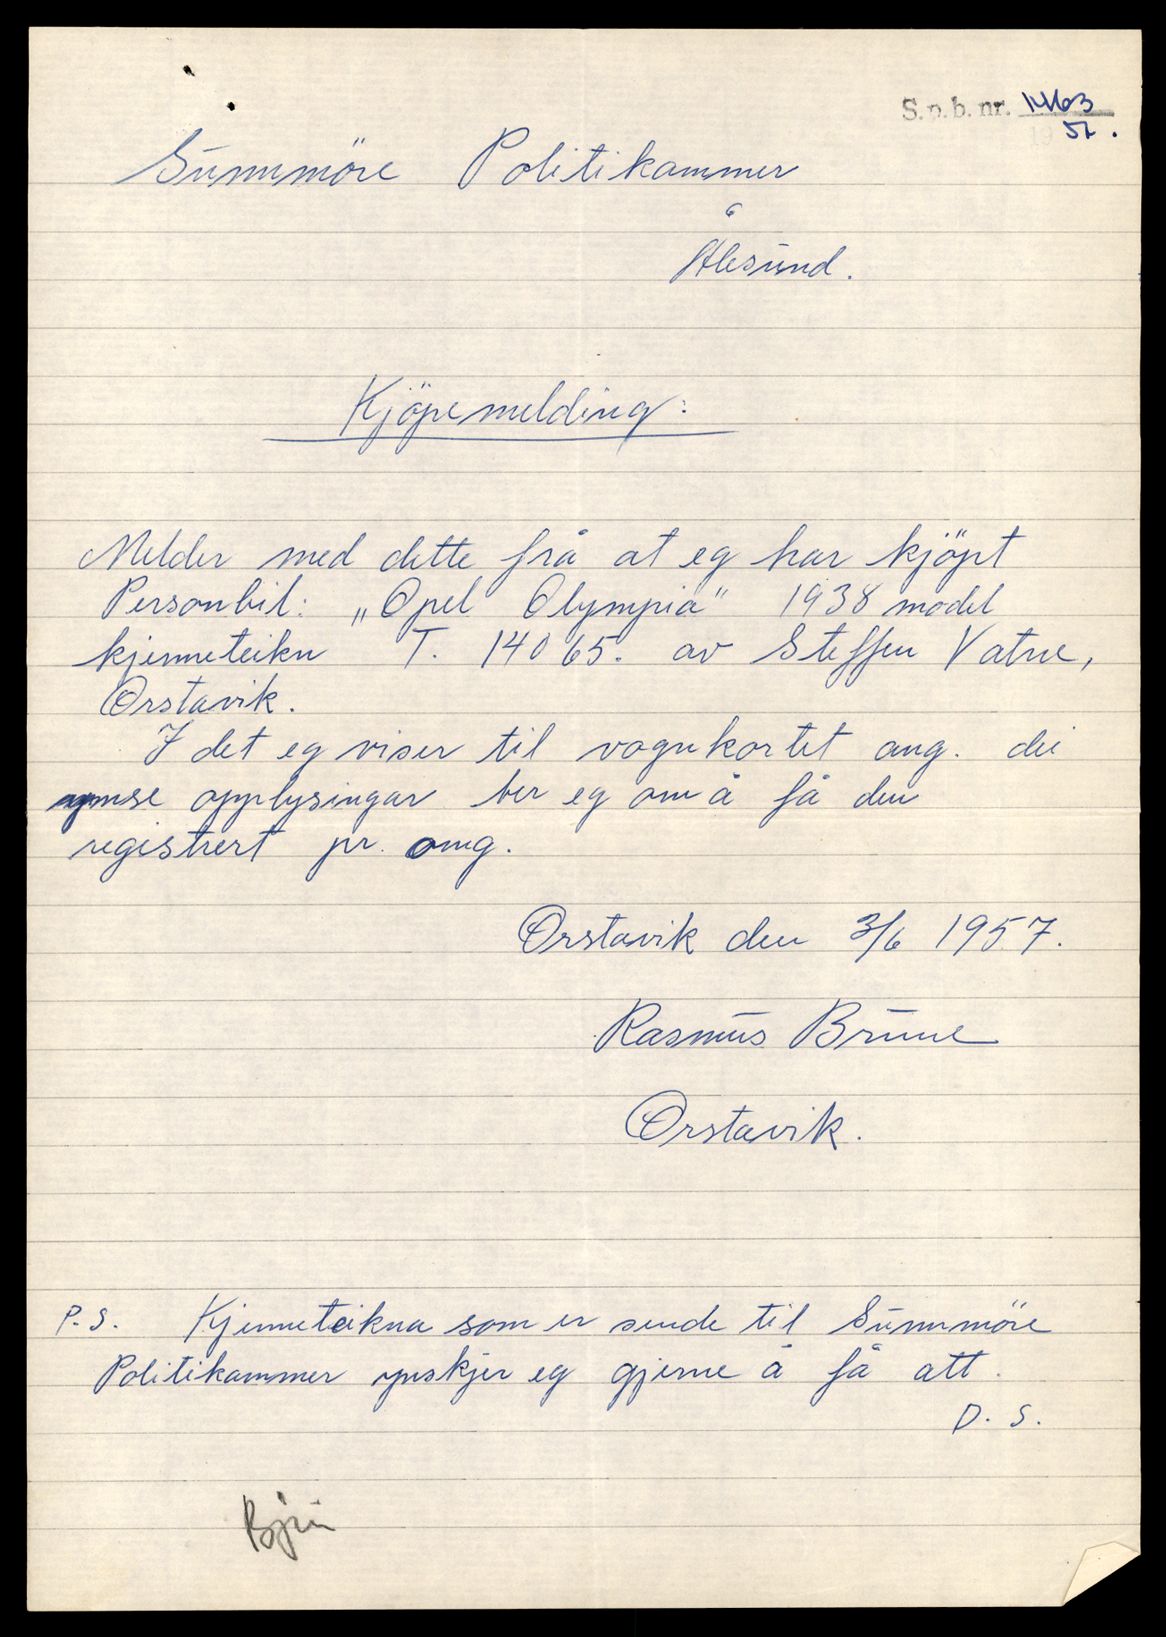 S.p.b. nr. 1463
57.
Sunnmöre Politikammer
Ålesund.
Kjöpemelding:
Melder med dette frå at eg har kjöpt
Personbil: „Opel Olympia" 1938 model
kjenneteikn T. 14065. av Steffen Vatne,
Örstavik.
I det eg viser til vognkortet ang. dei
ymse opplysingar ber eg om å få den
registrert pr. omg.
Örstavik den 3/6 1957.
Rasmus Brune
Örstavik.
P.S. Kjenneteikna som er sende til Sunnmöre
Politikammer ynskjer eg gjerne å få att.
D. S.